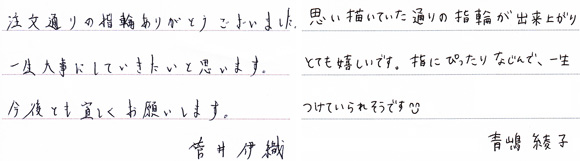 注文通りの指輪ありがとうございました。
一生大事にしていきたいと思います。
今後とも宜しくお願いします。
菅井伊織
思い描いていた通りの指輪が出来上がり
とても嬉しいです。指にぴったりなじんで、一生
つけていられそうです☺
青嶋綾子